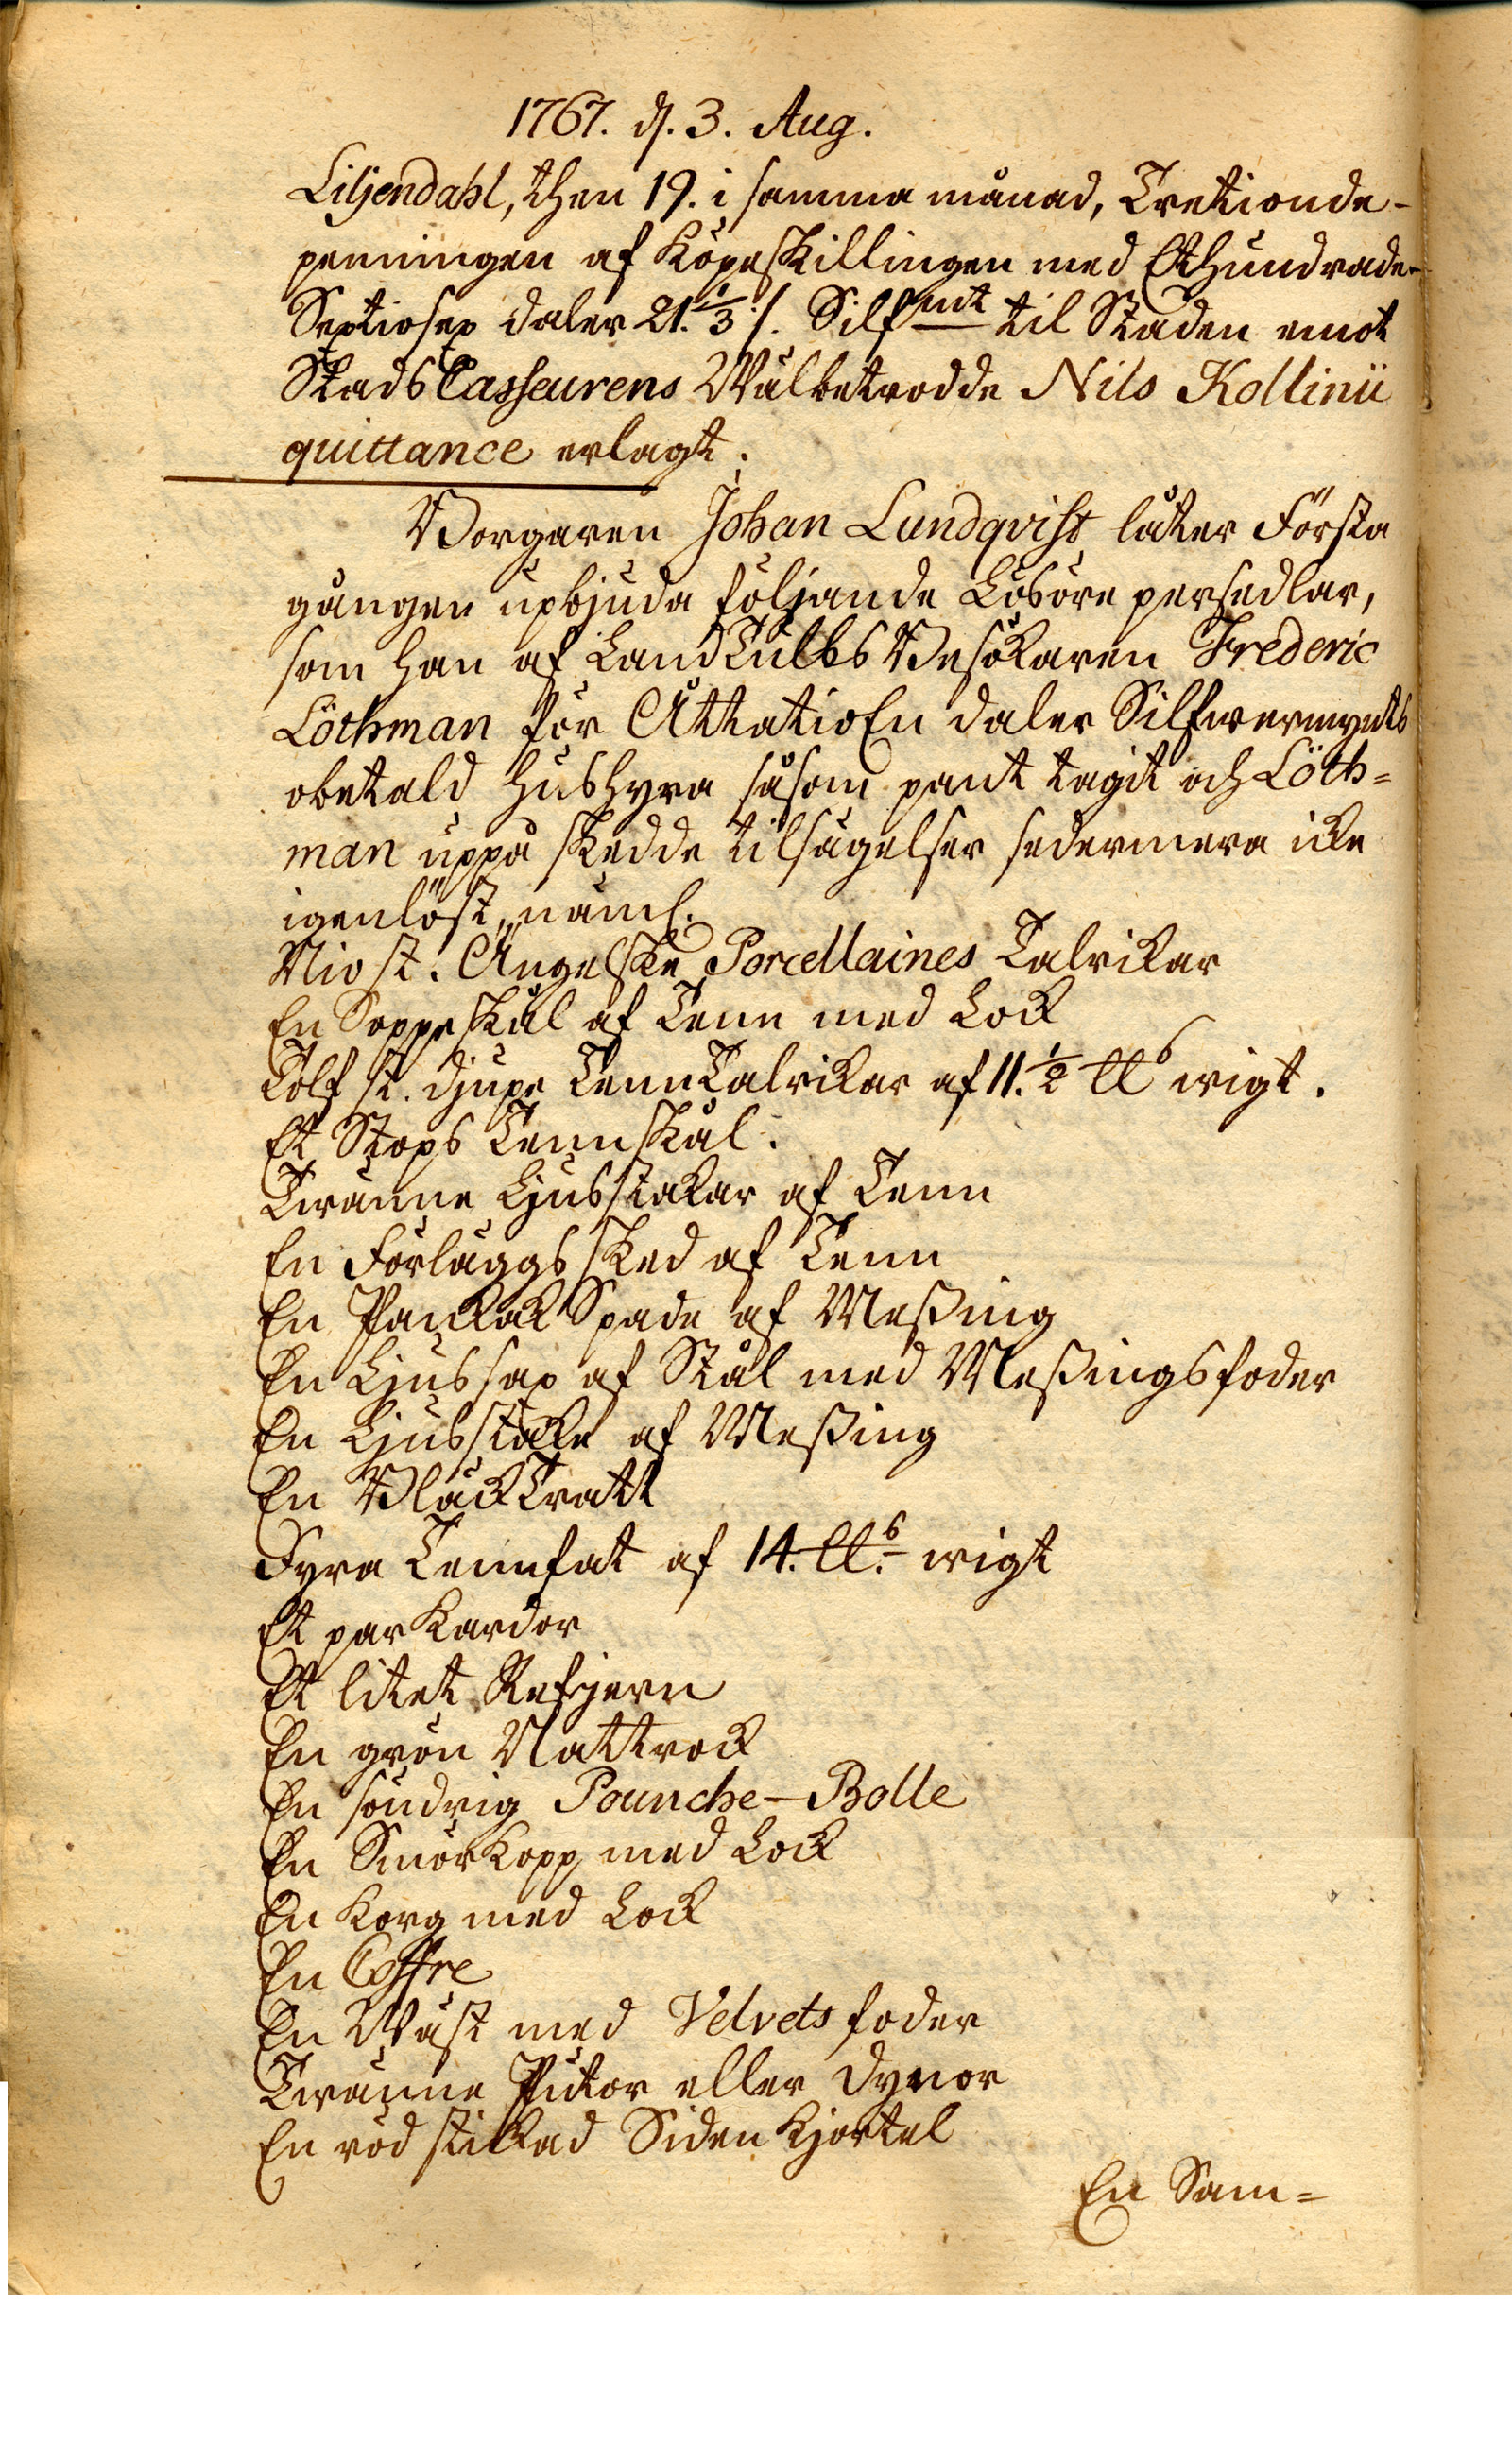 1767. d. 3. Aug.
Liljendahl, then 19. i samma månad, Tretionde-
penningen af Köpeskillingen med Ethundrade-
Sextiosex daler 21.⅓ /. Silfmt til Staden emot
StadsCasseurens Wälbetrodde Nils Kollinii
quittance erlagt.
Borgaren Johan Lundqvist låter Första
gången upbjuda följande Lösöre persedlar,
som han af LandTullsBesökaren Frederic
Löthman för ÅttatioEn daler Silfwermynts
obetald hushyra såsom pant tagit och Löth=
man uppå skedde tilsägelser sedermera icke
igenlöst, näml.
Nio st. Ängelske Porcellaines Talrikar
En Soppeskål af Tenn med Lock
Tolf st. djupe TennTalrikar af 11.½ ℔ wigt.
Et Stops Tennskål.
Twänne Ljusstakar af Tenn
En Förläggs sked af Tenn
En PankakSpade af Meßing
En Ljussax af Stål med Meßingsfoder
En Ljusstake af Meßing
En BläckTratt
Fyra Tennfat af 14. ℔. wigt
Et par Kardor
Et litet Refjern
En grön Nattrock
En söndrig Pounche-Bolle
En Smörkopp med Lock
En Korg med Lock
En Coffre
En Wäst med Velvets foder
Twänne Putor eller dynor
En röd stickad Siden Kjortel
En Sam=